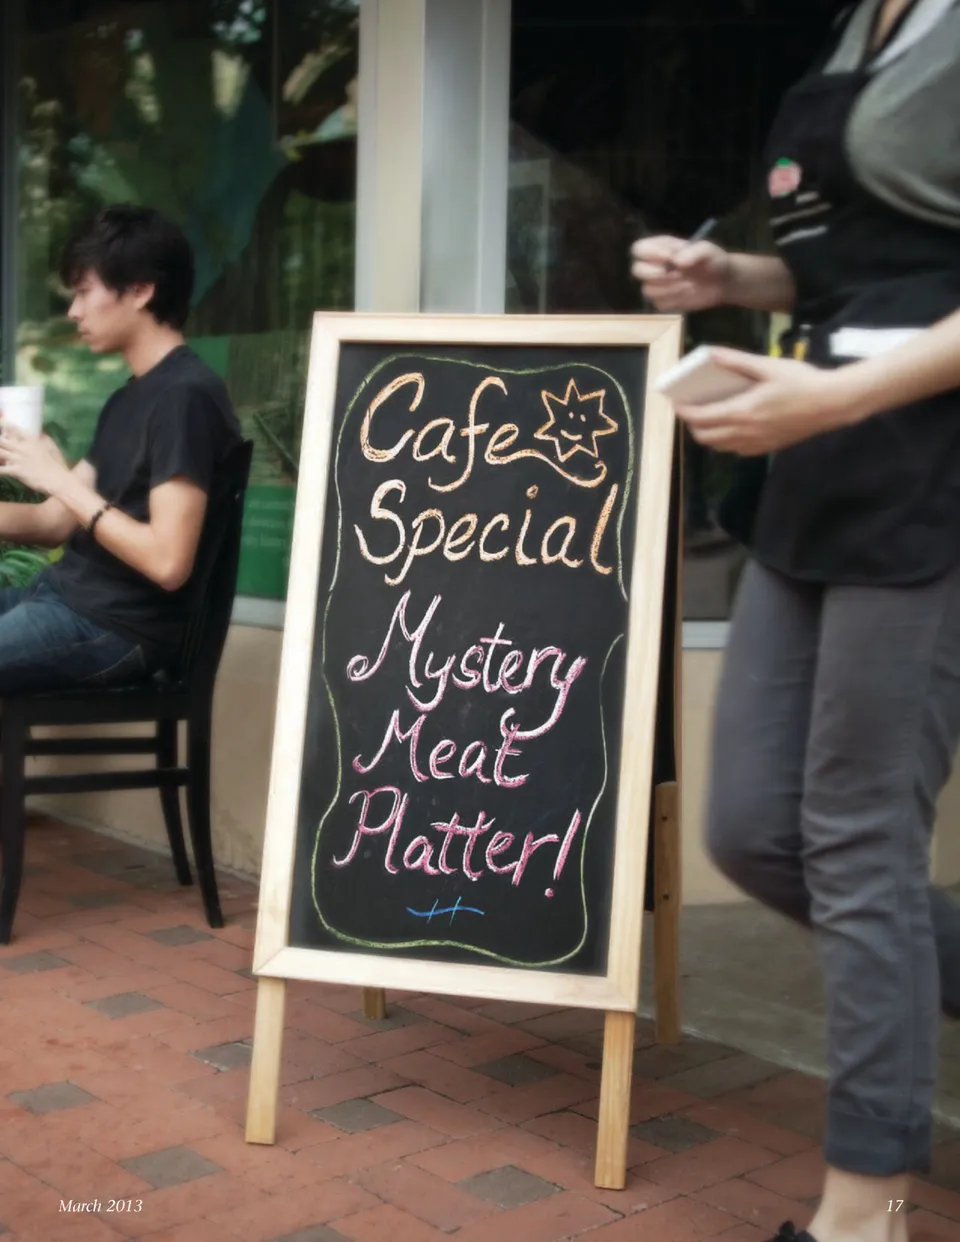 Cafe
Special
Mystery
Meat
Platter!
March 2013
17